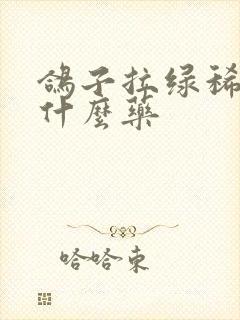 鸽子拉绿稀
什麼藥
哈哈東